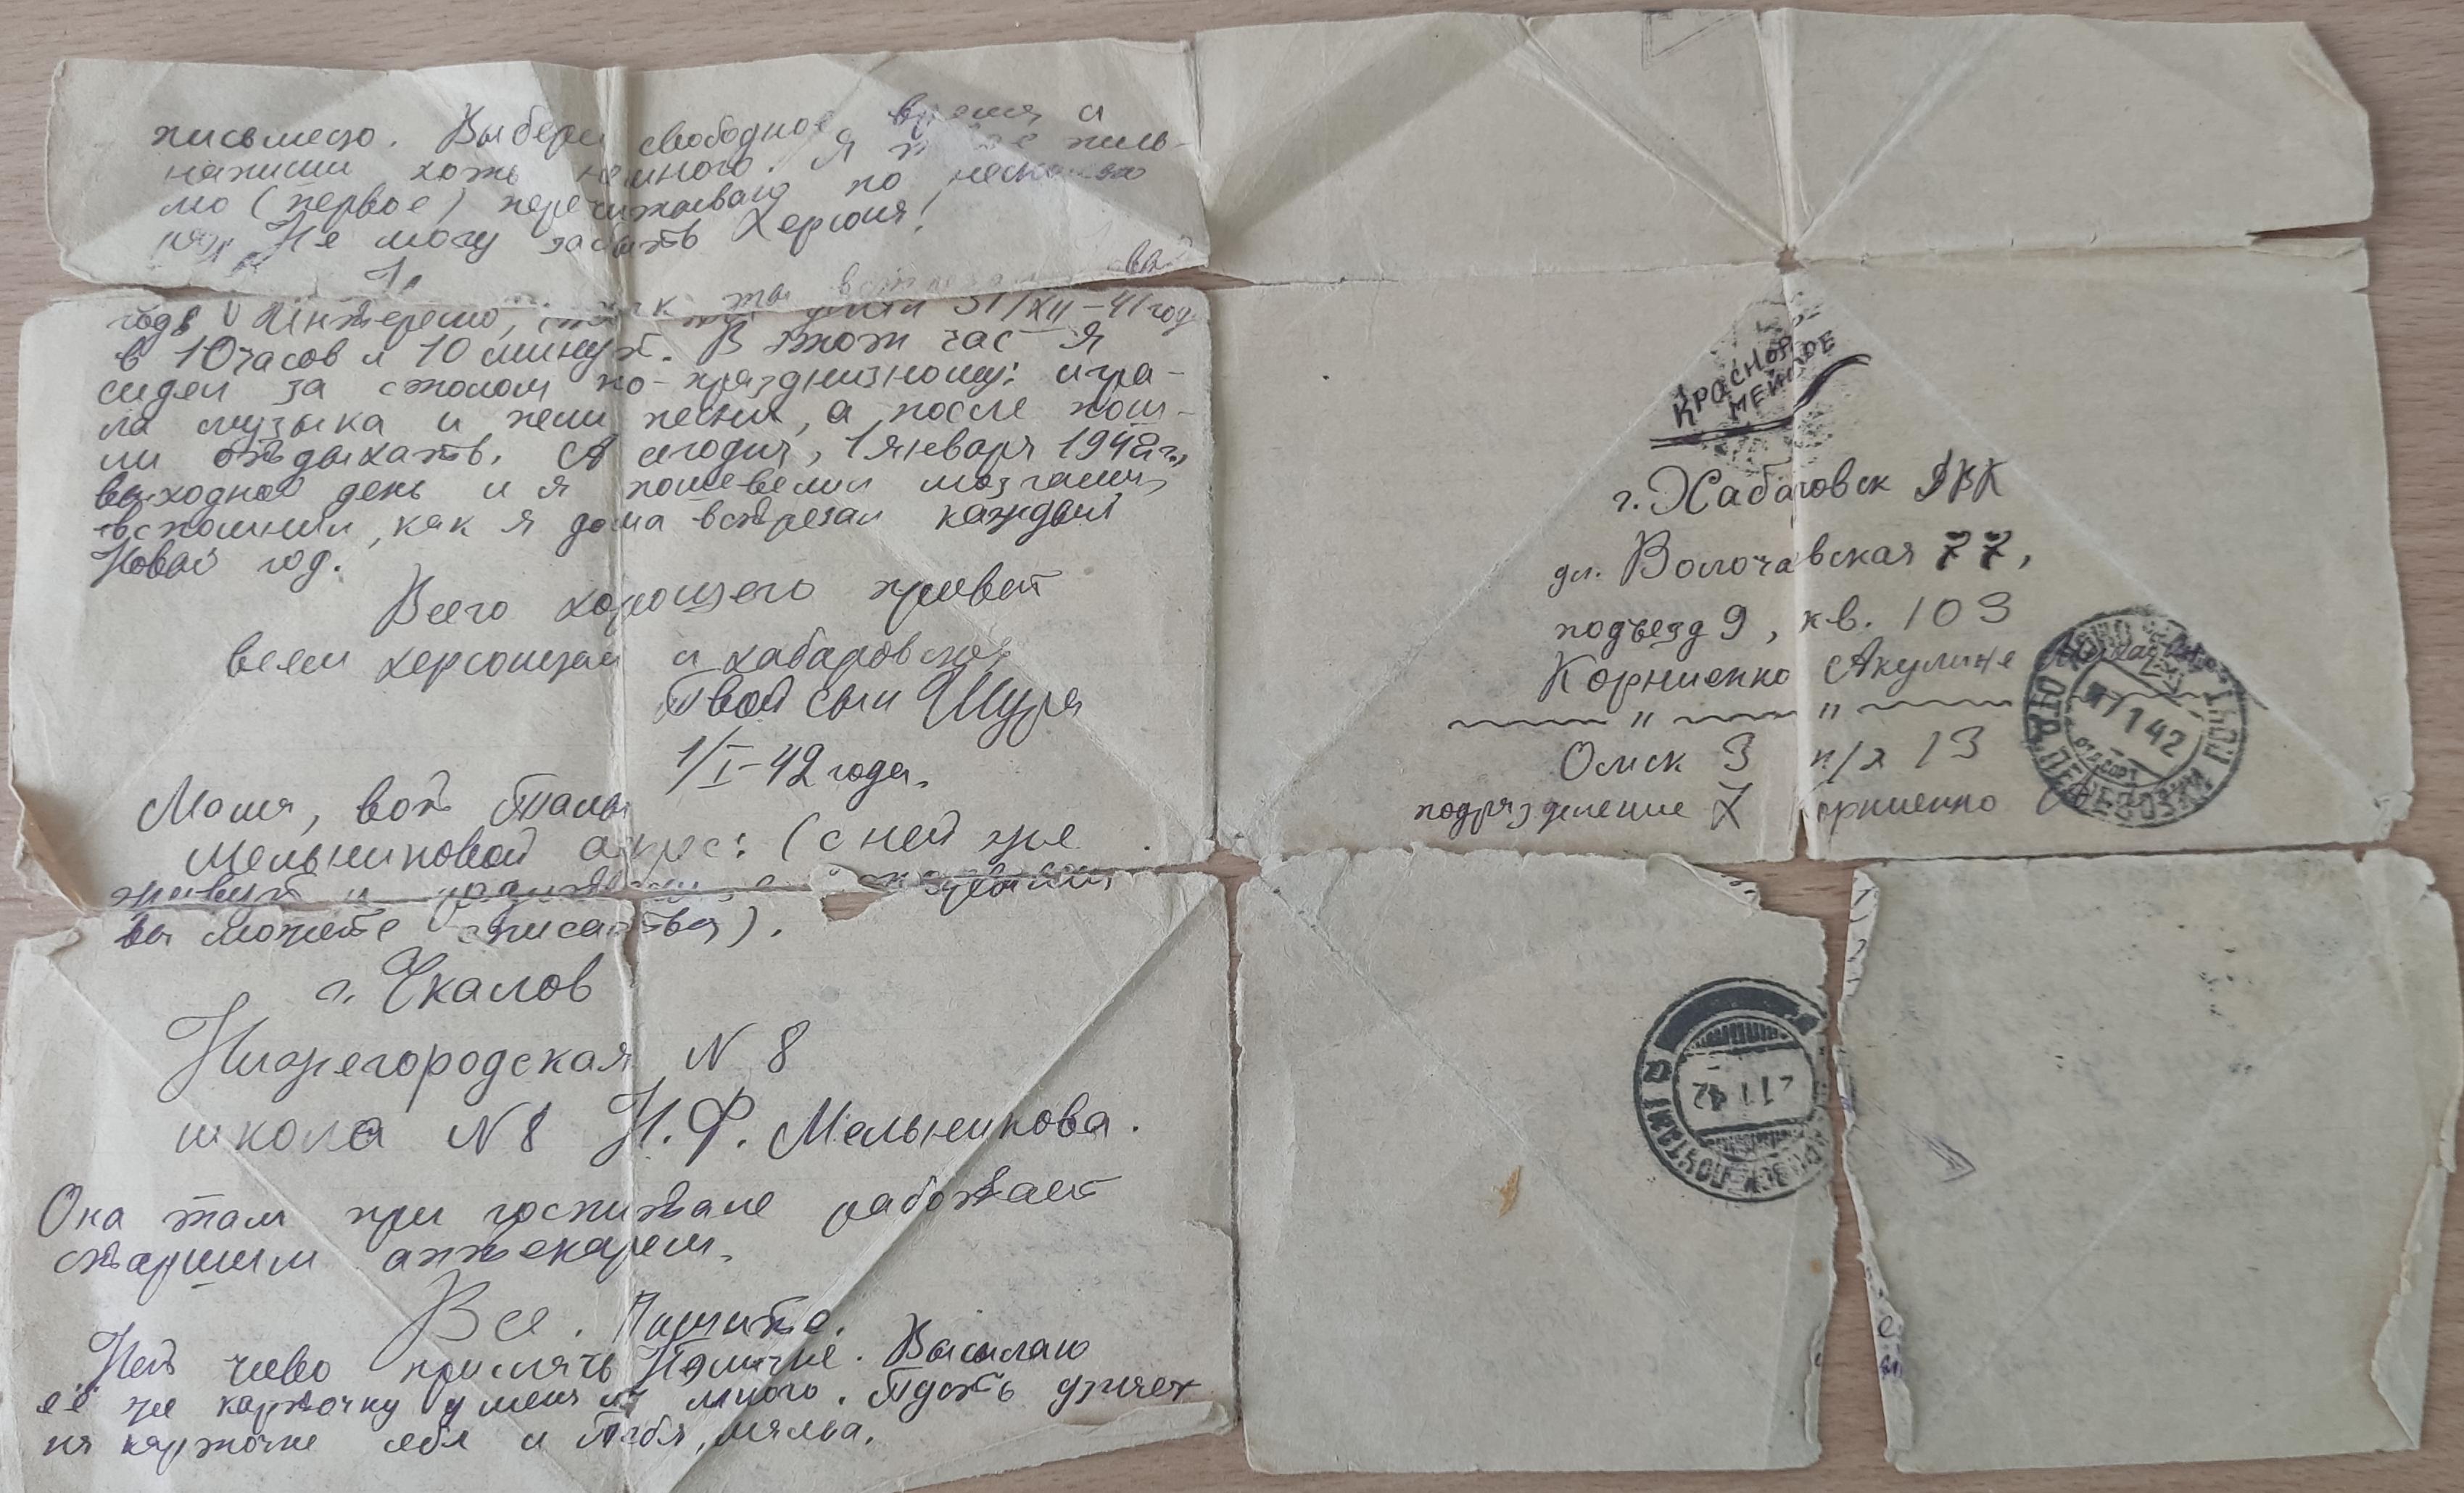 письмецо. Выбери свободное время и
напиши хоть немного. Я пись-
мо (первое) перечитываю по несколько
раз. Не могу забыть Херсона!
ты
года Интересно, 31/XII-41 год
в 10 часов и 10 минут. В этот час я
сидел за столом по-праздничному: игра-
ла музыка и пели песни, а после пош-
ли отдыхать. А сегодня, 1 января 1942 г.,
выходной день и я пошевелил мозгами,
вспомнил, как я дома встречал каждый
Новый год.
Всего хорошего привет
всем херсонцам и хабаровцам
Твой сын Шура
1/I-42 года.
Мама, вот Тани
Мельниковой адрес: (с ней уже
живут и
вы можете списаться).
г. Чкалов
Нижегородская N 8
школа N8 Н.Ф. Мельникова.
Она там при госпитале работает
старшим аптекарем.
Все. Пишите.
Нет чево прислать Номичке. Высылаю
её же карточку у меня их много. Пусть узнает
на карточке себя и тебя, мама.
КРАСНОАР
МЕЙСКОЕ
г. Хабаровск ДВК
ул. Волочаевская 77,
подъезд 9, кв. 103
Корниенко Акулине
" "
Омск 3 п/я 13
подразделение 7 Корниенко
7 1 42
1 1 42